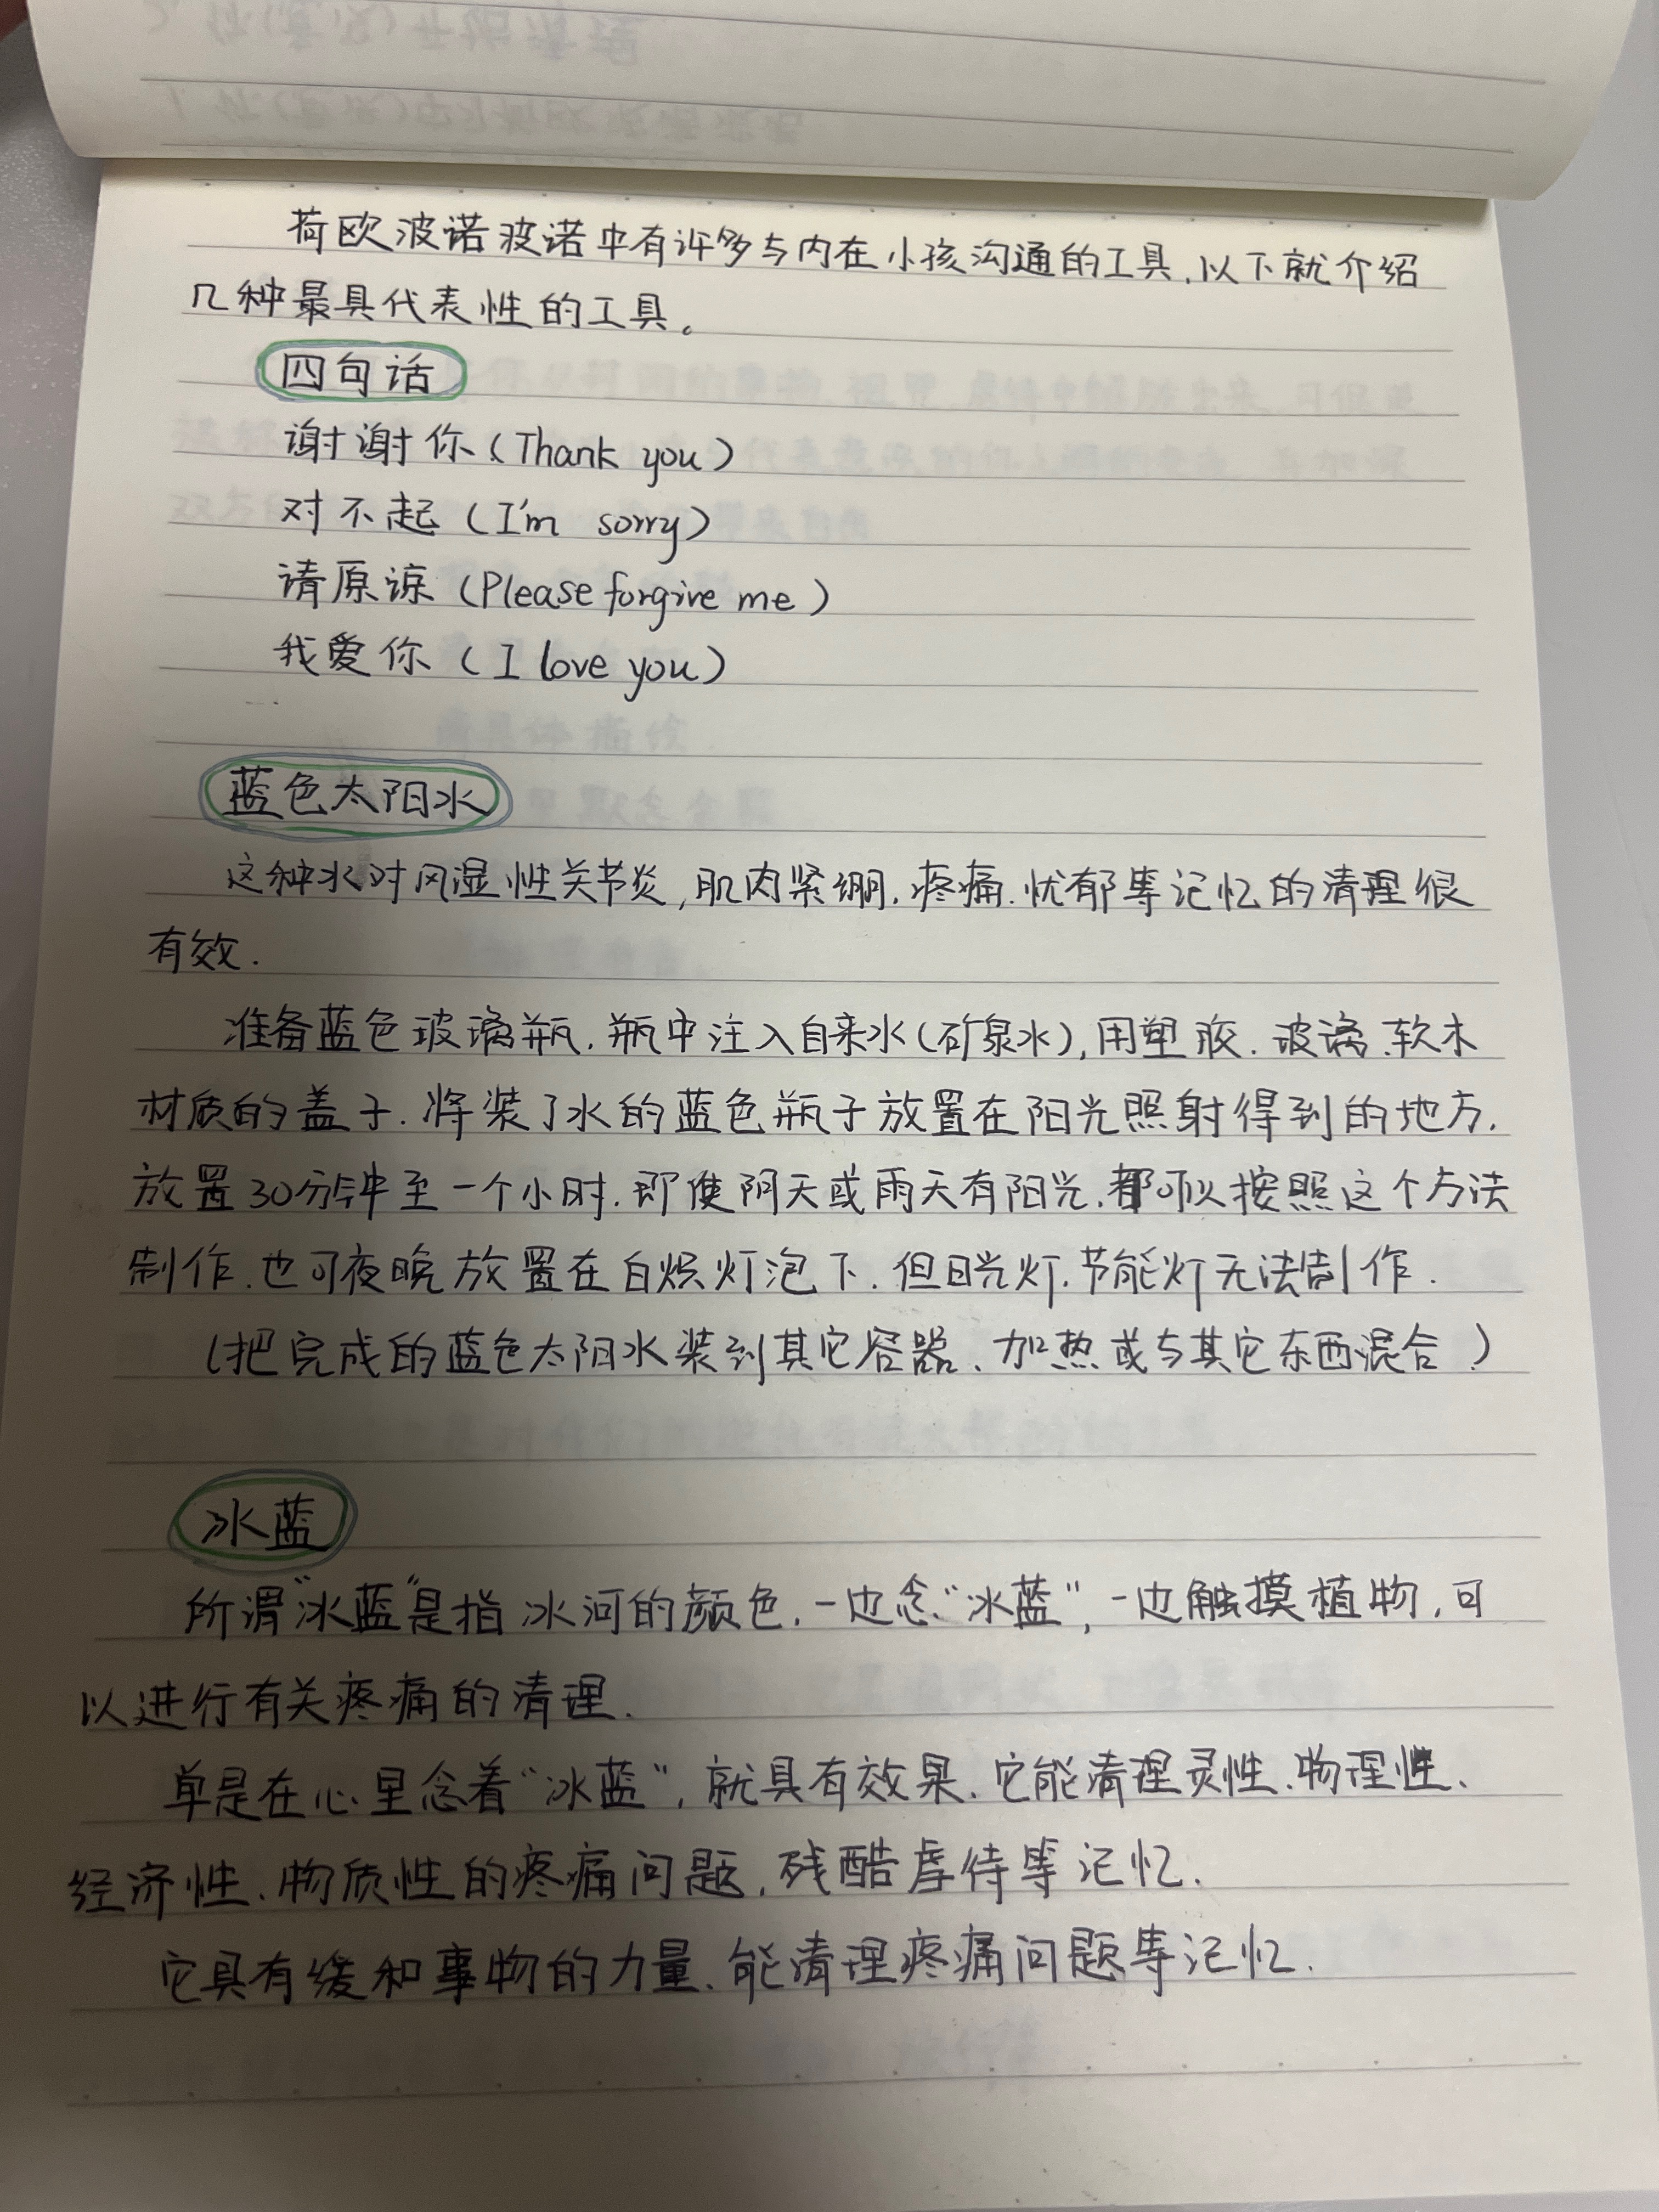 荷欧波诺波诺中有许多与内在小孩沟通的工具,以下就介绍
几种最具代表性的工具。
四句话
谢谢你(Thank you)
对不起(I'm sorry)
请原谅(Please forgive me)
我爱你(I love you)
蓝色太阳水
这种水对风湿性关节炎,肌肉紧绷、疼痛、忧郁等记忆的清理很
有效.
准备蓝色玻璃瓶,瓶中注入自来水(矿泉水),用塑胶、玻璃、软木
材质的盖子.将装了水的蓝色瓶子放置在阳光照射得到的地方,
放置30分钟至一个小时.即使阴天或雨天有阳光,都可以按照这个方法
制作.也可夜晚放置在白炽灯泡下.但日光灯、节能灯无法制作.
(把完成的蓝色太阳水装到其它容器、加热或与其它东西混合)
冰蓝
所谓"冰蓝"是指冰河的颜色,一边念"冰蓝",一边触摸植物,可
以进行有关疼痛的清理.
单是在心里念着"冰蓝",就具有效果.它能清理灵性、物理性、
经济性、物质性的疼痛问题,残酷虐待等记忆.
它具有缓和事物的力量、能清理疼痛问题等记忆.